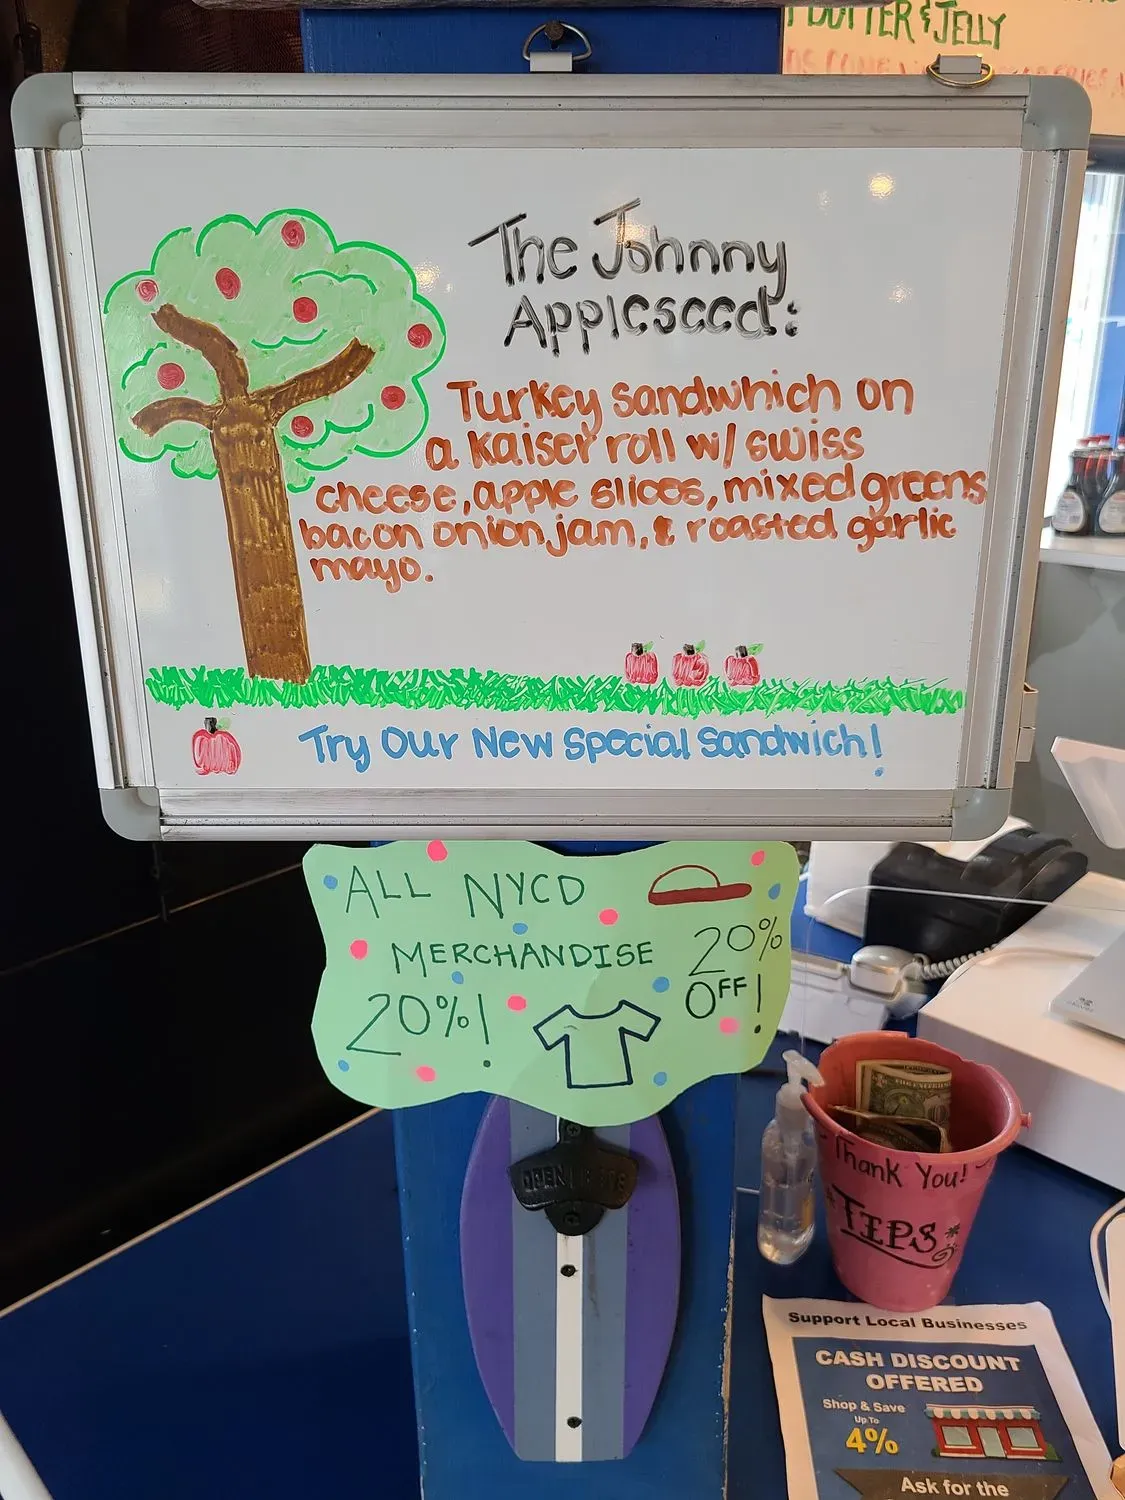 & JELLY
The Johnny
Appleseed:
Turkey sandwhich on
a Kaiser roll w/ swiss
cheese, apple slices, mixed greens
bacon onion jam, & roasted garlic
mayo.
Try Our New Special Sandwich!
ALL NYCD
MERCHANDISE
20%!
20%
OFF!
OPEN HERE
Thank You!
TIPS
Support Local Businesses
CASH DISCOUNT
OFFERED
Shop & Save
Up To
4%
Ask for the